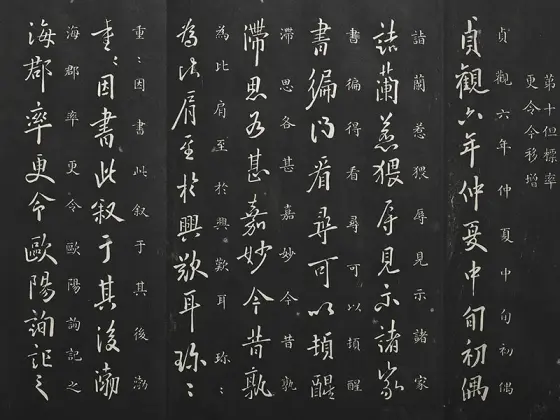 第十伍標率
更令今移增
貞觀六年仲夏中旬初偶
貞觀六年仲夏中旬初偶
詣蘭惹猥辱見示諸家
詣蘭惹猥辱見示諸家
書徧得看尋可以頓醒
書徧得看尋可以頓醒
滯思各甚嘉妙今昔孰
滯思各甚嘉妙今昔孰
為比肩至於興歎耳珎:
為比肩至於興歎耳珎:
重:因書此叙于其後渤
重:因書此叙于其後渤
海郡率更令歐陽詢記之
海郡率更令歐陽詢記之